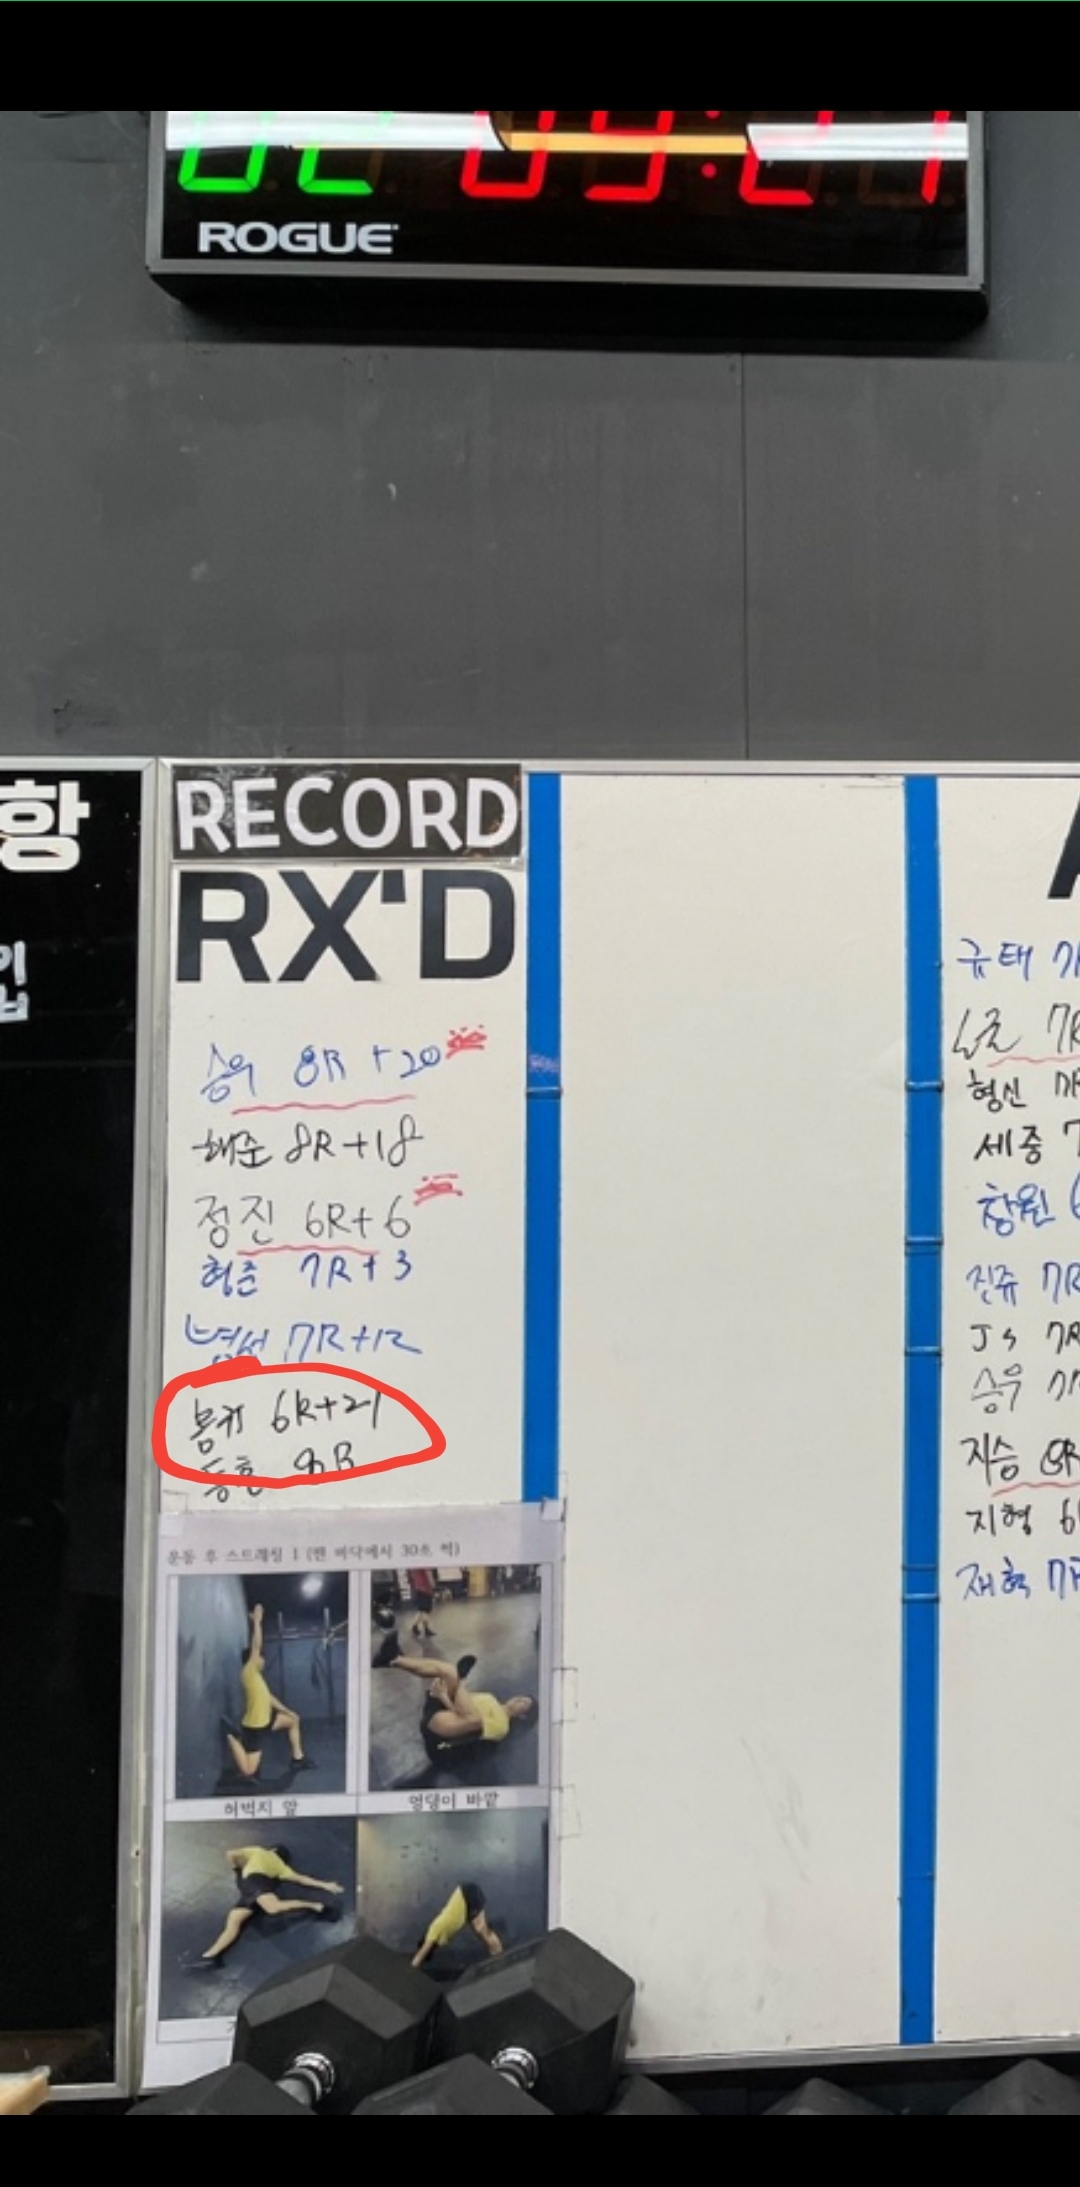 ROGUE
항
RECORD
RX'D
승우 8R + 20
해준 8R+18
정진 6R+6
형준 7R+3
7R+12
봉귀 6R+21
동훈
운동 후 스트레칭 1 (맨 바닥에서 30초 씩)
허벅지 앞
엉덩이 바깥
규태
7R
형신
세종 7
창원 6
진쥬 7R
JS 7R
승우
지승 8R
지형 6
재혁